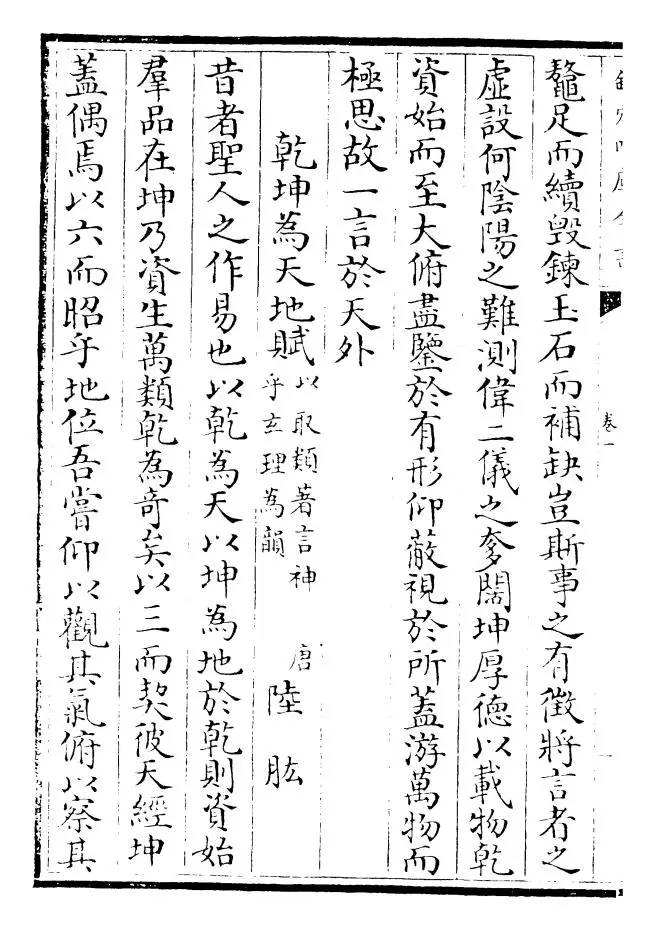 鼇足而續毀鍊玉石而補缺豈斯事之有徵將言者之
虛設何陰陽之難測偉二儀之奓闊坤厚德以載物乾
資始而至大俯盡鑒於有形仰蔽視於所蓋游萬物而
極思故一言於天外
乾坤為天地賦
以取類著言神
乎玄理為韻
唐
陸肱
昔者聖人之作易也以乾為天以坤為地於乾則資始
羣品在坤乃資生萬類乾為奇矣以三而契彼天經坤
蓋偶焉以六而昭乎地位吾嘗仰以觀其氣俯以察其
卷一